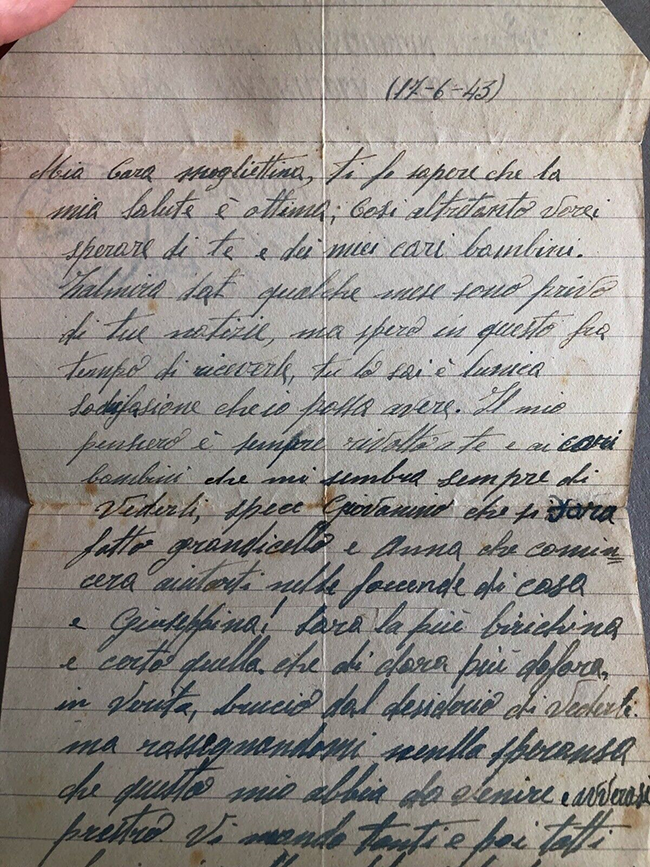 (17-6-43)
Mia Cara mogliettina, ti fo sapere che la
mia salute è ottima; Cosi altritanto Vorei
sperare di te e dei miei cari bambini.
Zalmira dat qualche mese sono privo
di tue notizie, ma spero in questo fra
tempo di riceverle, tu lo sai è lunica
sodifasione che io possa avere. Il mio
pensiero è sempre rivolto a te e ai cari
bambini che mi sembra sempre di
Vederli, spece Giovanino che si sara
fatto grandicello e Anna che comin=
cera aiutarti nelle facende di casa
e Giuseppina! Sara la più birichina
e certo quella che di dara più
in Verita, brucio dal desiderio di Vederti.
ma rassegnandomi nella speransa
che questo mio abbia da venire e
prestro. Vi mando tanti e poi tatti